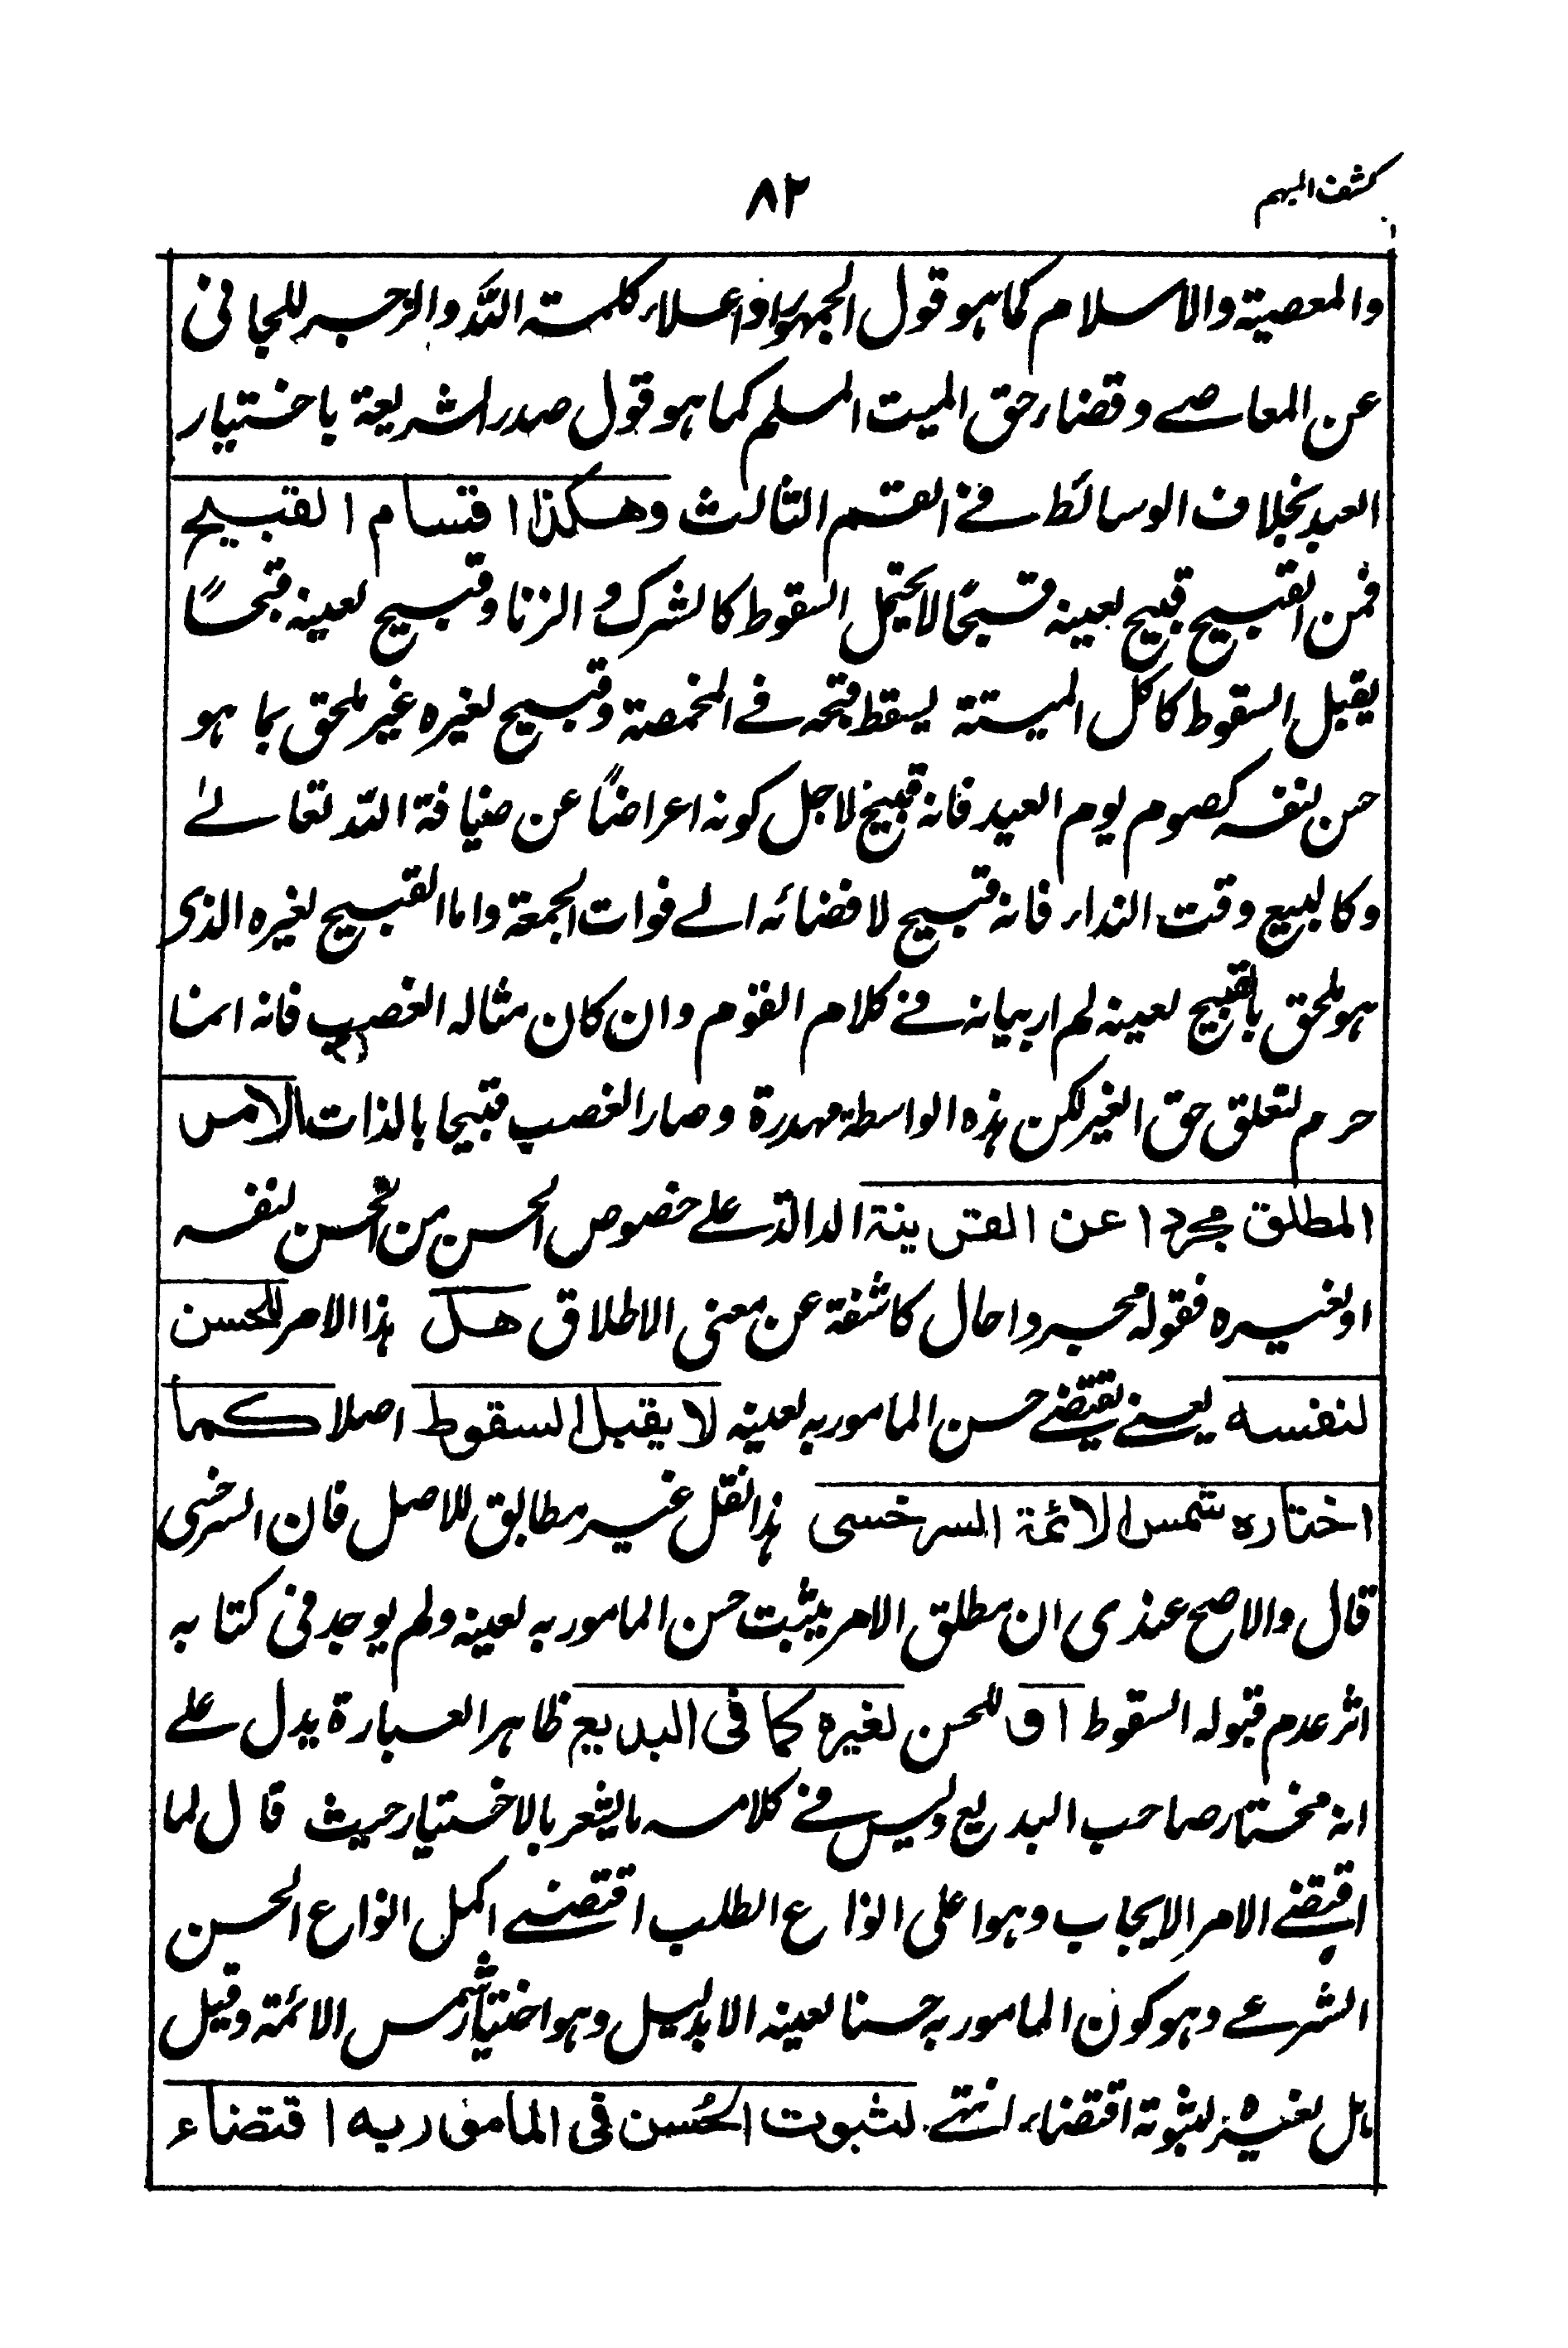 كشف المبهم
٨٢
والمعصية والاسلام كما هو قول الجمهور او اعلاء كلمة الله والزجر للجانى
عن المعاصے وقضاء حق الميت المسلم كما هو قول صدر الشريعة باختيار
العبد بخلاف الوسائط فے القسم الثالث وهكذا اقسام القبيح
فمن القبيح قبيح لعينه قبحًا لا يحتمل السقوط كالشرك و الزنا وقبيح لعينه قبحًا
يقبل السقوط كاكل الميتة يسقط قبحه فے المخمصة وقبيح لغيره غير ملحق بما هو
حسن لنفسه كصوم يوم العيد فانه قبيح لاجل كونه اعراضًا عن ضيافة الله تعالےٰ
وكالبيع وقت النداء فانه قبيح لافضائه الے فوات الجمعة واما القبيح لغيره الذى
هو ملحق بالقبيح لعينه لم ار بيانه فے كلام القوم وان كان مثاله الغصب فانه انما
حرم لتعلق حق الغير لكن هذه الواسطة مهدرة وصار الغصب قبيحا بالذات الامر
المطلق مجردا عن القرينة الدالة علے خصوص الحسن من الحسن لنفسه
او لغيره فقوله مجردا حال كاشفة عن معنى الاطلاق هل هذا الامر للحسن
لنفسه يعنے يقتضے حسن المامور به لعينه لا يقبل السقوط اصلا كما
اختاره شمس الائمة السرخسى هذا النقل غير مطابق للاصل فان السرخسى
قال والاصح عندى ان مطلق الامر يثبت حسن المامور به لعينه ولم يوجد فى كتابه
اثر عدم قبوله السقوط او للحسن لغيره كما فى البديع ظاهر العبارة يدل علے
انه مختار صاحب البديع وليس فے كلامه ما يشعر بالاختيار حيث قال لما
اقتضے الامر الايجاب وهو اعلى انواع الطلب اقتضے اكمل انواع الحسن
الشرعے وهو كون المامور به حسنا لعينه الا بدليل وهو اختيار شمس الائمة وقيل
بل لغيره لثبوته اقتضاء انتهے لثبوت الحُسن فى المامور به اقتضاء